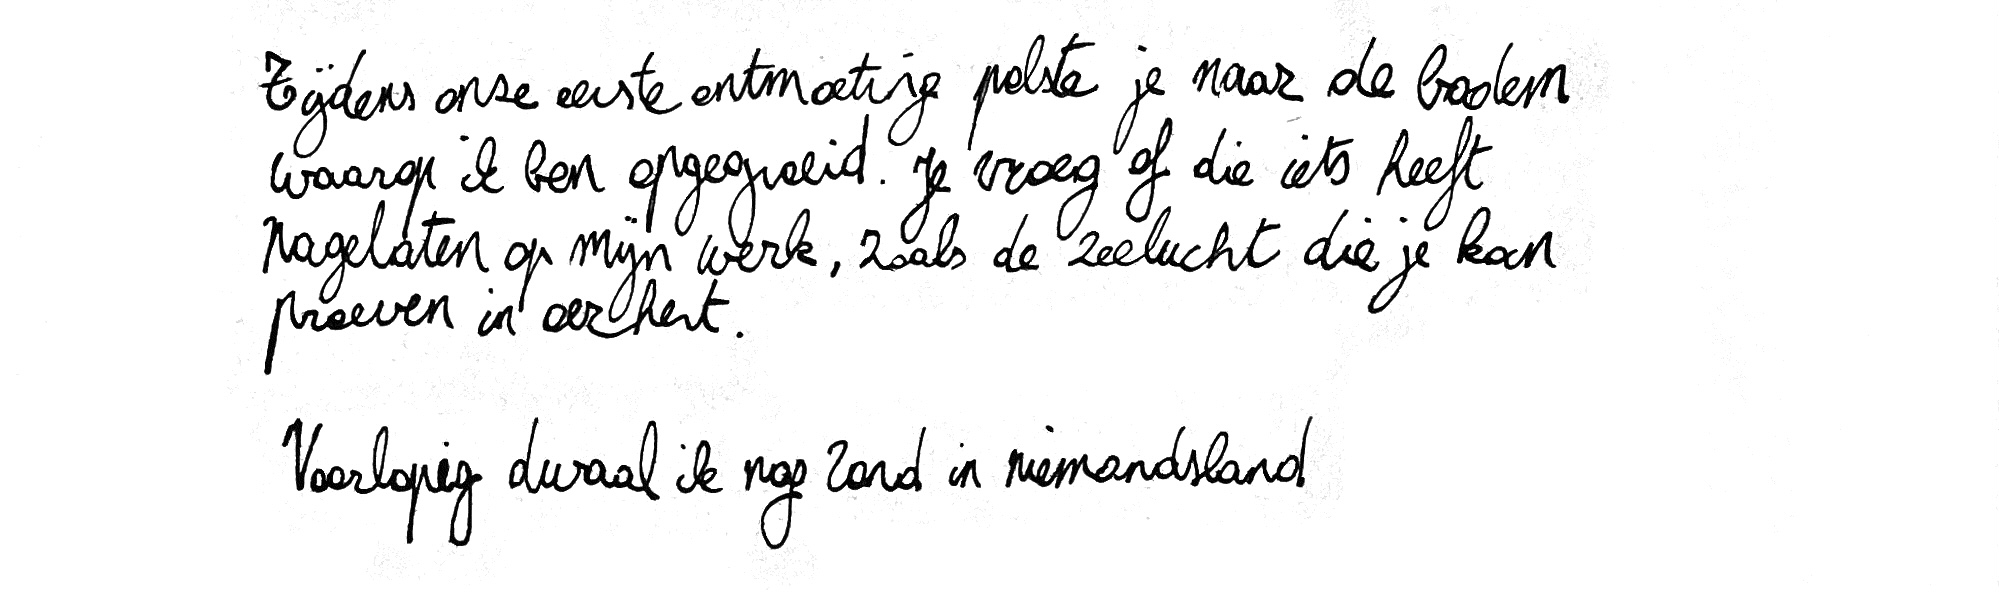 Tijdens onze eerste ontmoeting polste je naar de bodem
waarop ik ben opgegroeid. Je vroeg of die iets heeft
nagelaten op mijn werk, zoals de zeelucht die je kan
proeven in
Voorlopig dwaal ik nog rond in niemandsland